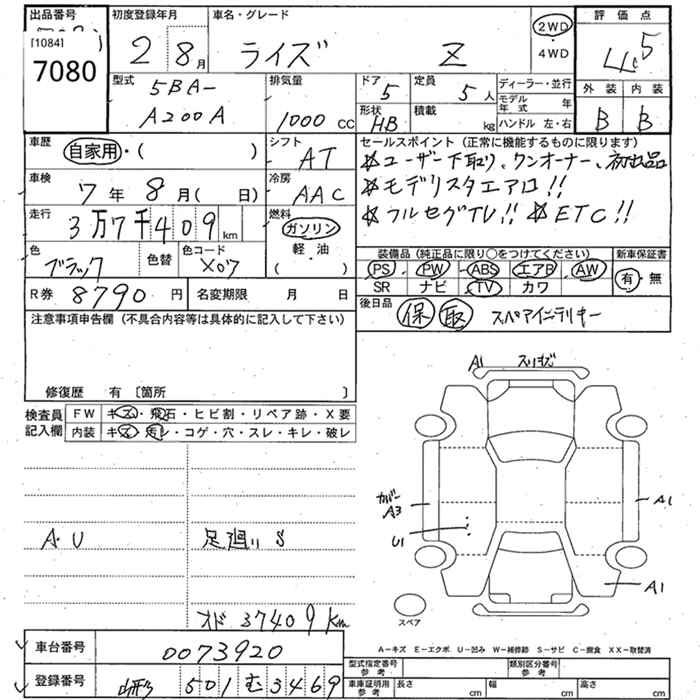 出品番号
[1084]
7080
初度登録年月
2 8月
車名・グレード
ライズ Z
2WD
・
4WD
評価点
4.5
外装 内装
B B
型式
5BA-
A200A
排気量
1000 CC
ドア
5
定員
5人
形状
HB
積載
kg
ディーラー・並行
モデル年式 年
ハンドル 左・右
車歴
自家用・( )
シフト
AT
車検
7年 8月( 日)
冷房
AAC
走行
3万7千409km
燃料
ガソリン
軽・油
( )
色
ブラック
色替
色コード
X07
R券 8790円
名変期限 月 日
セールスポイント(正常に機能するものに限ります)
☆ユーザー下取り、ワンオーナー、初出品
☆モデリスタエアロ!!
☆フルセグTV!! ☆ETC!!
装備品(純正品に限り○をつけてください)
PS PW ABS エアB AW
SR ナビ TV カワ
新車保証書
有・無
後日品
保 取 スペアインテリキー
注意事項申告欄(不具合内容等は具体的に記入して下さい)
修復歴 有〔箇所 〕
検査員記入欄
FW キズ・飛石・ヒビ割・リペア跡・X要
内装 キズ・汚レ・コゲ・穴・スレ・キレ・破レ
A・U
足廻り S
オド 37409km
A1 スリキズ
カバー
A3
U1
A1
A1
スペア
A－キズ E－エクボ U－凹み W－補修跡 S－サビ C－腐食 XX－取替済
車台番号 0073920
登録番号 山形 501 む 3469
型式指定番号
参考
類別区分番号
参考
車庫証明用
参考
長さ cm
幅 cm
高さ cm